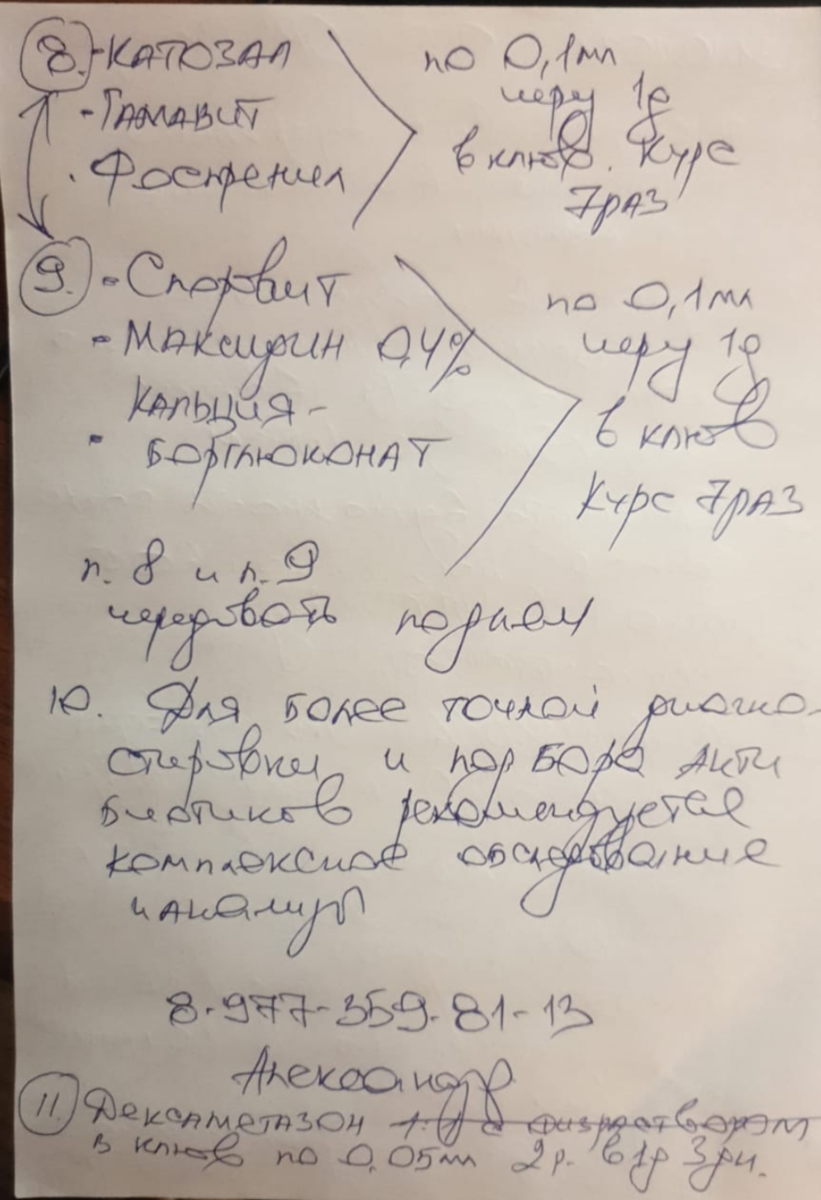 8. - КАТОЗАЛ
- ГАМАВИТ
. Фоспренил
по 0,1мл
черу 1д
в клюв. Курс
7раз
9. - Споровит
- МАКСИДИН 0,4%
КАЛЬЦИЯ -
- БОРГЛЮКОНАТ
по 0,1мл
черу 1д
в клюв
Курс 7раз
п. 8 и п. 9
чередовать подием
10. Для более точной диагно-
стировки и подбора анти
биотиков рекомендуется
комплексное обследование
и анализы
8-977-359-81-13
Александр
11. Дексаметазон 1:1 с физраствором
в клюв по 0,05мл 2р. в 1д 3дн.